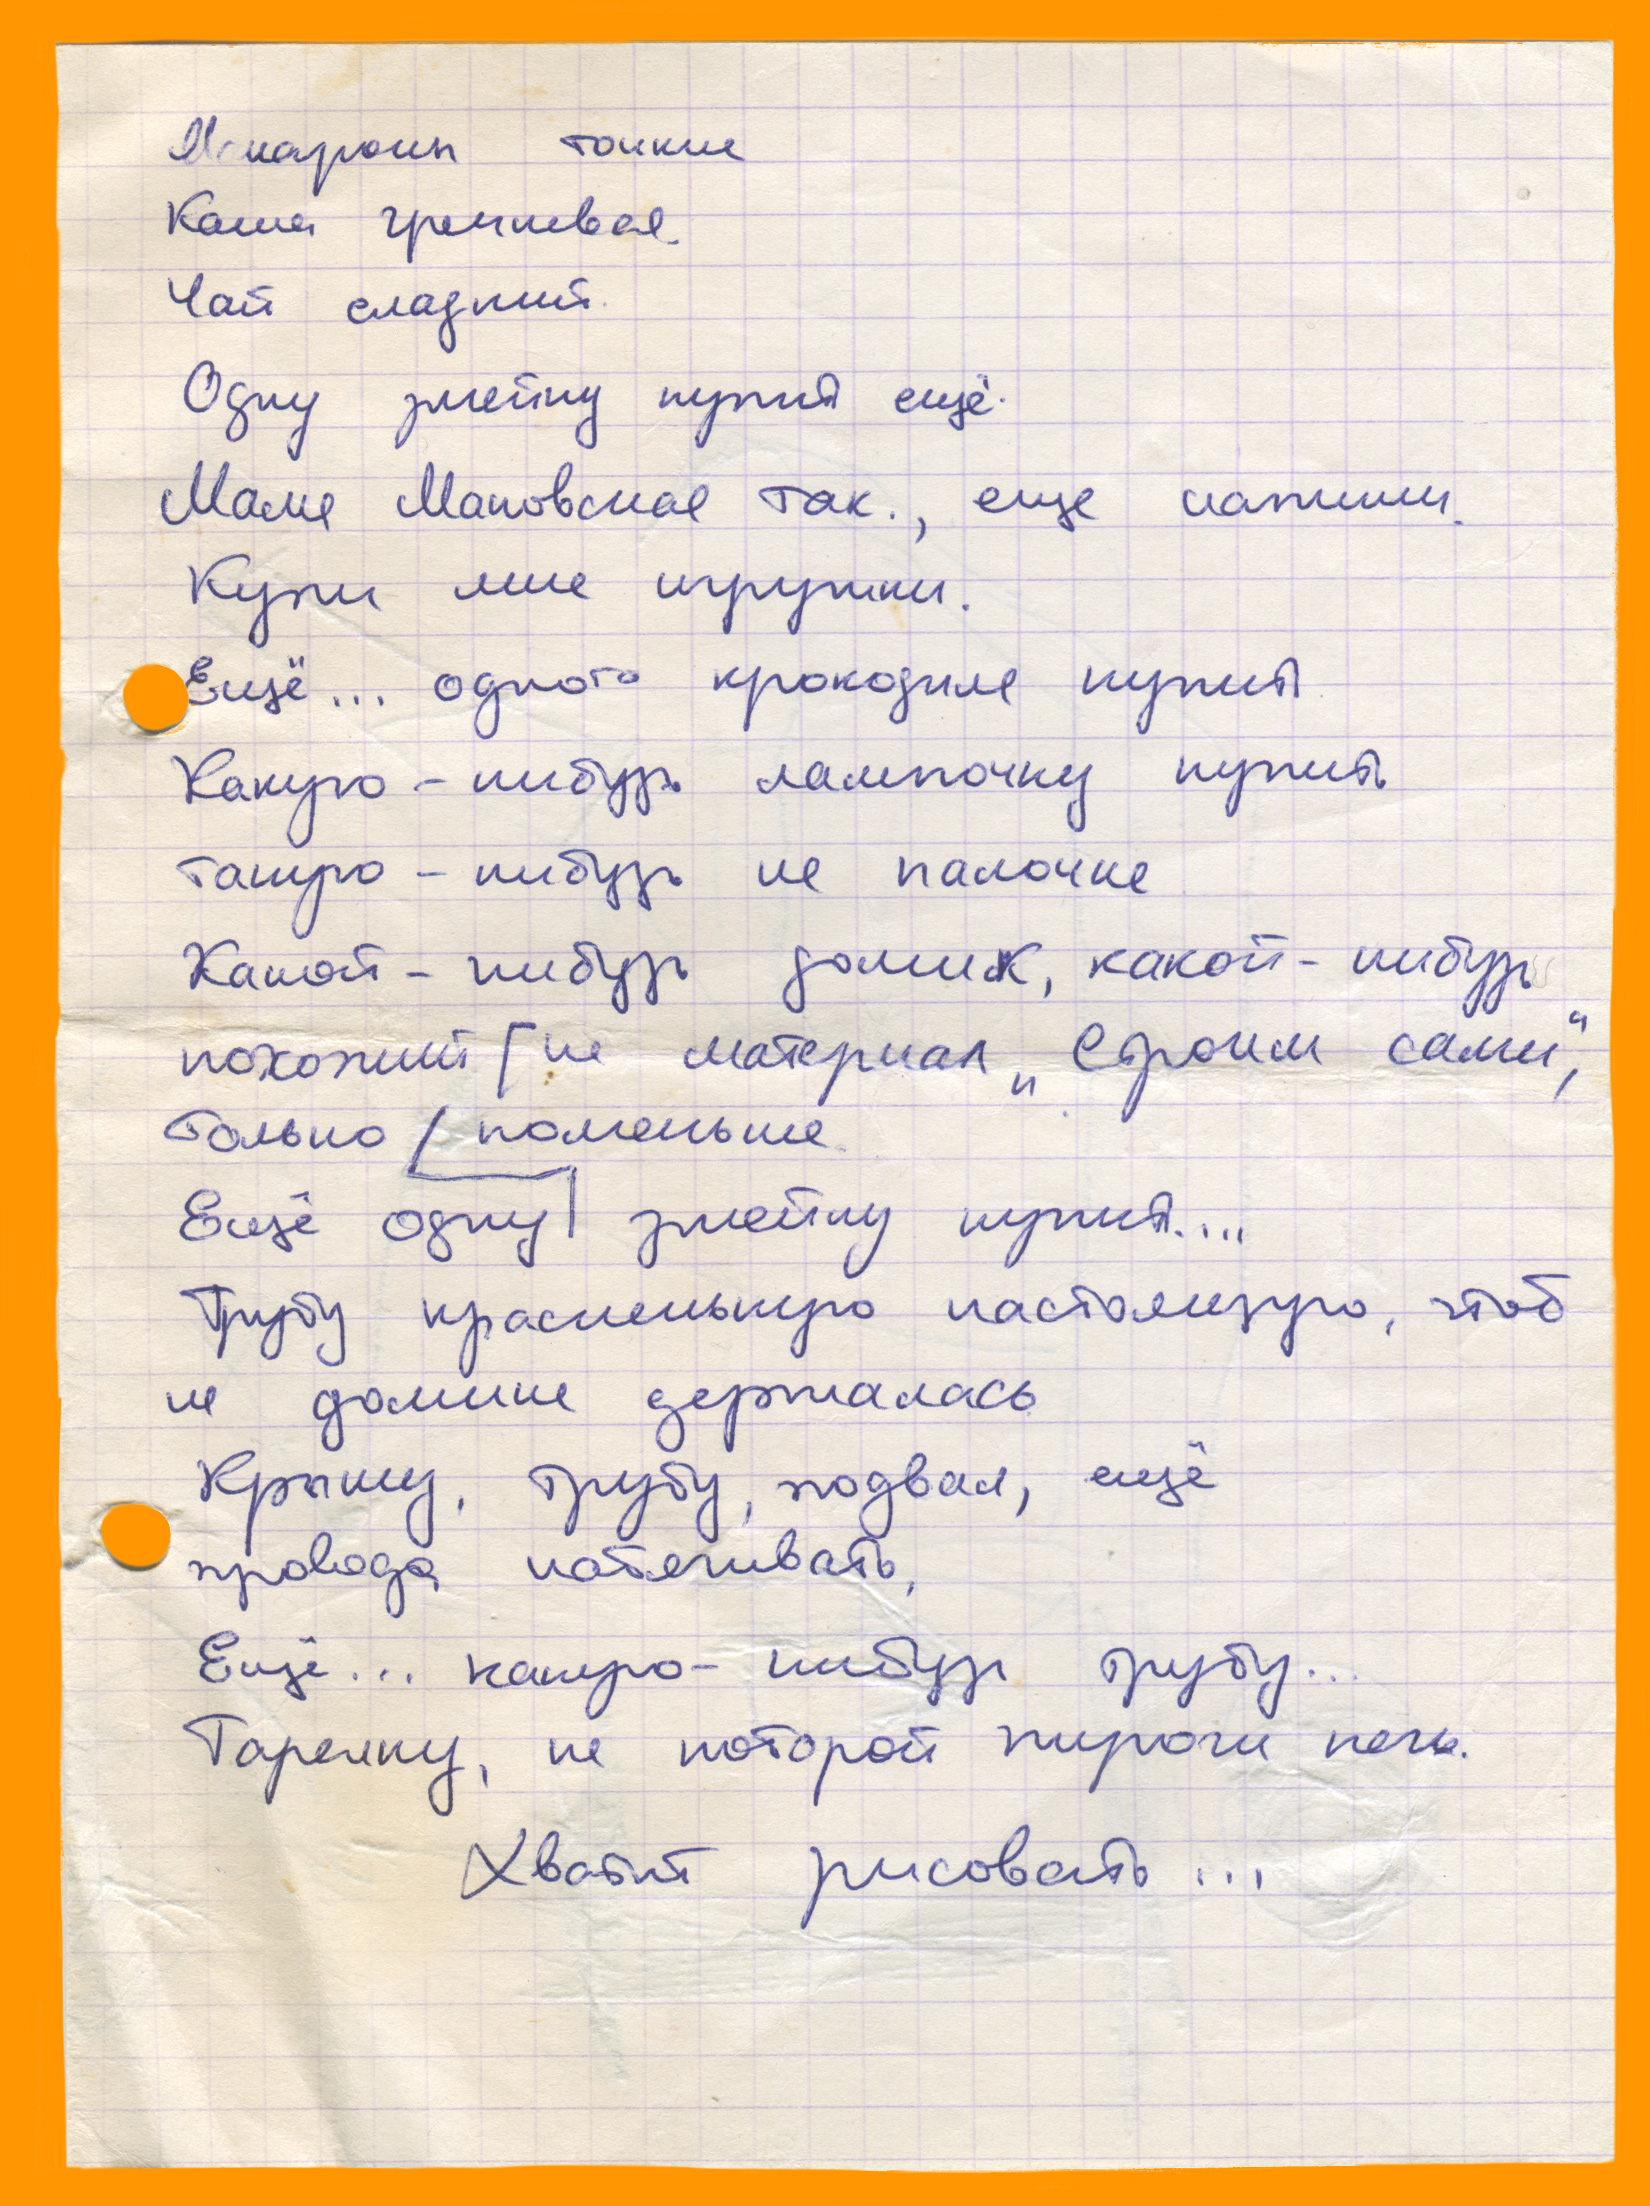 Макароны тонкие
Каша гречневая.
Чай сладкий.
Одну змейку купить ещё.
Маме Маковская так., еще напиши.
Купи мне игрушки.
Ещё... одного крокодила купить
Какую-нибудь лампочку купить
такую-нибудь на палочке
Какой-нибудь домик, какой-нибудь
похожий на материал „Строим сами“,
только поменьше
Ещё одну змейку купить....
Трубу красненькую настоящую, чтоб
на домике держалась
Крышу, трубу, подвал, ещё
провода натягивать,
Ещё... какую-нибудь трубу...
Тарелку, на которой пироги печь.
Хватит рисовать...